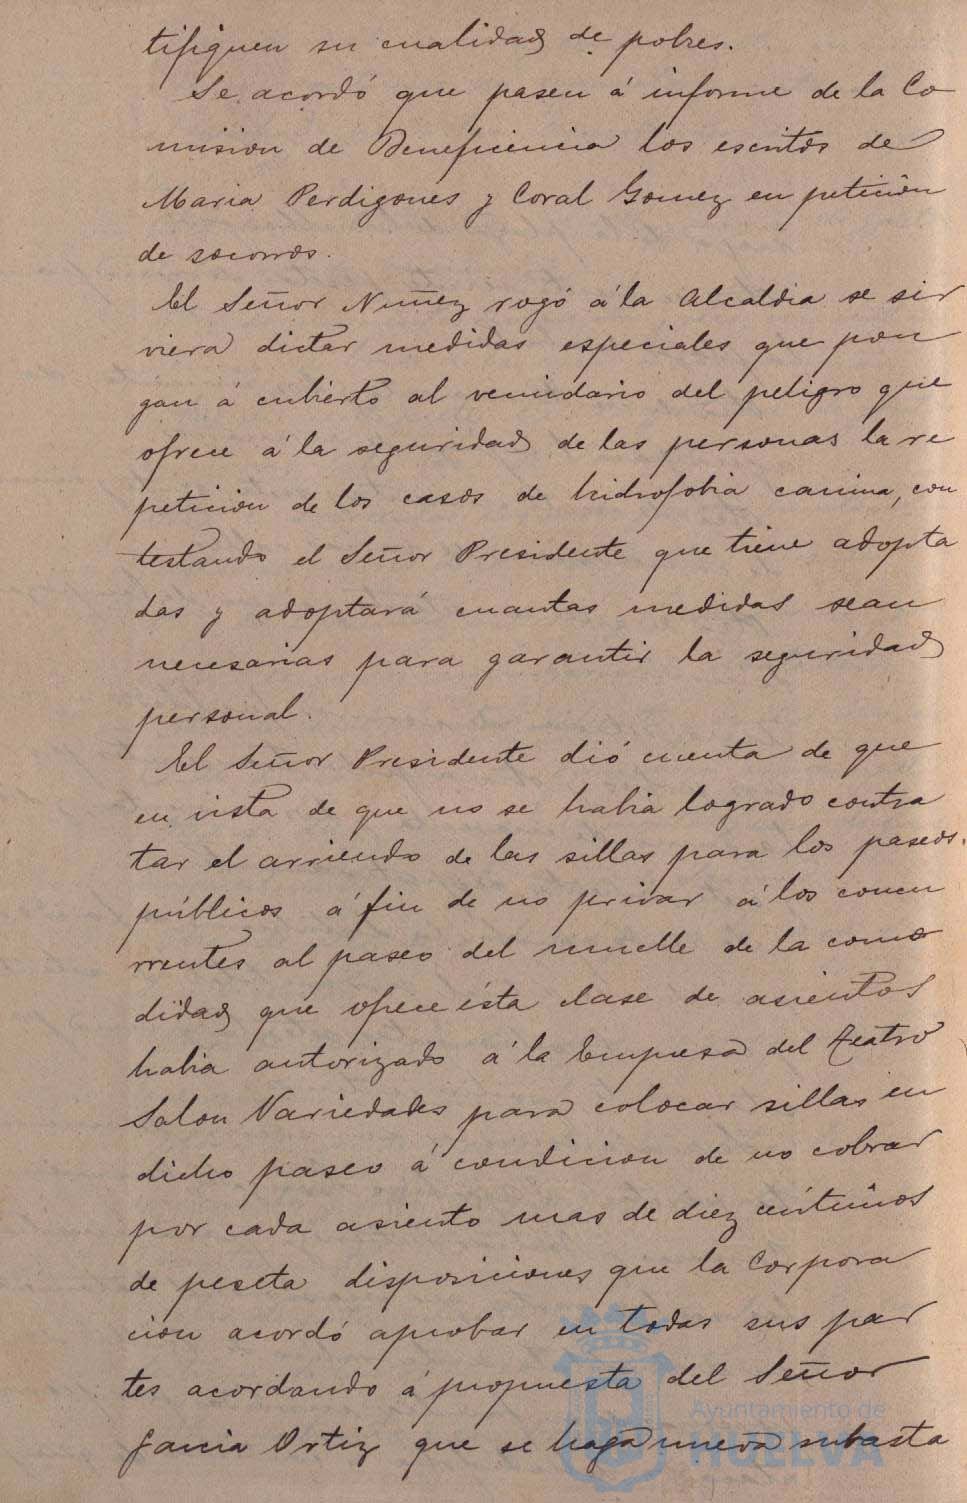 tifiquen su cualidad de pobres.
Se acordó que pasen á informe de la Co
mision de Beneficencia los escritos de
Maria Perdigones y Coral Gomez en petición
de socorros.
El Señor Nuñez rogó á la Alcaldia se sir
viera dictar medidas especiales que pon
gan á cubierto al vecindario del peligro que
ofrece á la seguridad de las personas la re
peticion de los casos de hidrofobia canina, con
testando el Señor Presidente que tiene adopta
das y adoptará cuantas medidas sean
necesarias para garantir la seguridad
personal.
El Señor Presidente dió cuenta de que
en vista de que no se habia logrado contra
tar el arriendo de las sillas para los paseos
públicos á fin de no privar á los concu
rrentes al paseo del muelle de la como
didad que ofrece ésta clase de asientos
habia autorizado á la Empresa del Teatro
Salon Variedades para colocar sillas en
dicho paseo á condicion de no cobrar
por cada asiento mas de diez céntimos
de peseta disposiciones que la Corpora
cion acordó aprobar en todas sus par
tes acordando á propuesta del Señor
Garcia Ortiz que se haga nueva subasta
Ayuntamiento de
HUELVA